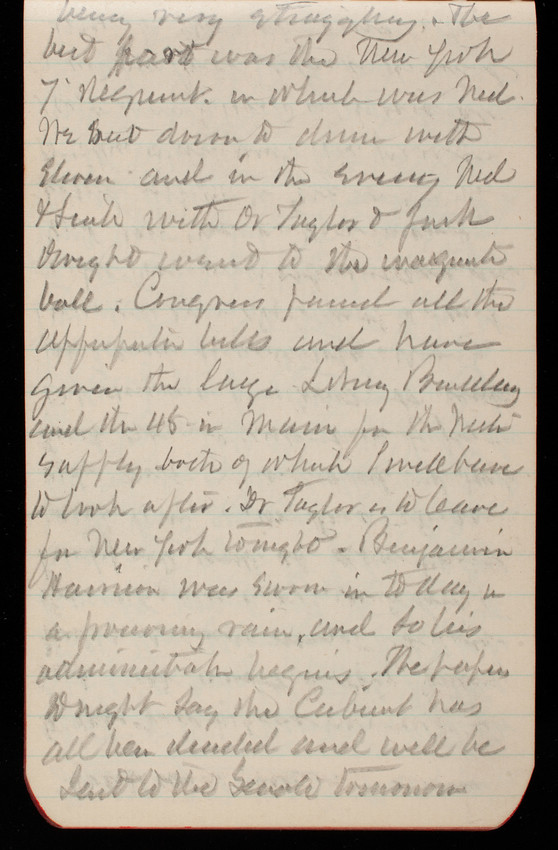 being very straggling. The
best part was the New York
7' Regiment in which was Ned.
We sat down to dinner with
Eleven and in the Evening Ned
with Dr Taylor & Jack
Dwight went to the
ball. Congress passed all the
appropriation bills and have
given the large Library Building
and the 48 in Main for the Water
supply both of which I will have
to look after. Dr Taylor is to leave
for New York tonight. Benjamin
Harrison was sworn in today in
a pouring rain, and so his
administration begins. The papers
tonight say the Cabinet has
all been decided and will be
sent to the Senate tomorrow